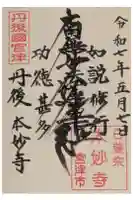 令和七年五月七日
如説修行
南無妙法蓮華経
功徳甚多
丹後 本妙寺
丹後國宮津
本妙寺
宮津市